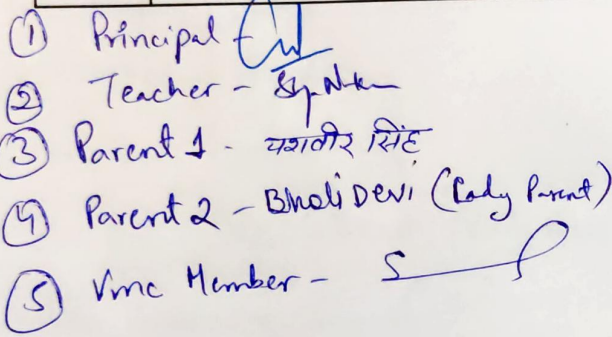 ① Principal -
② Teacher -
③ Parent 1 - यशवीर सिंह
④ Parent 2 - Bholi Devi (Lady Parent)
⑤ Vmc Member -